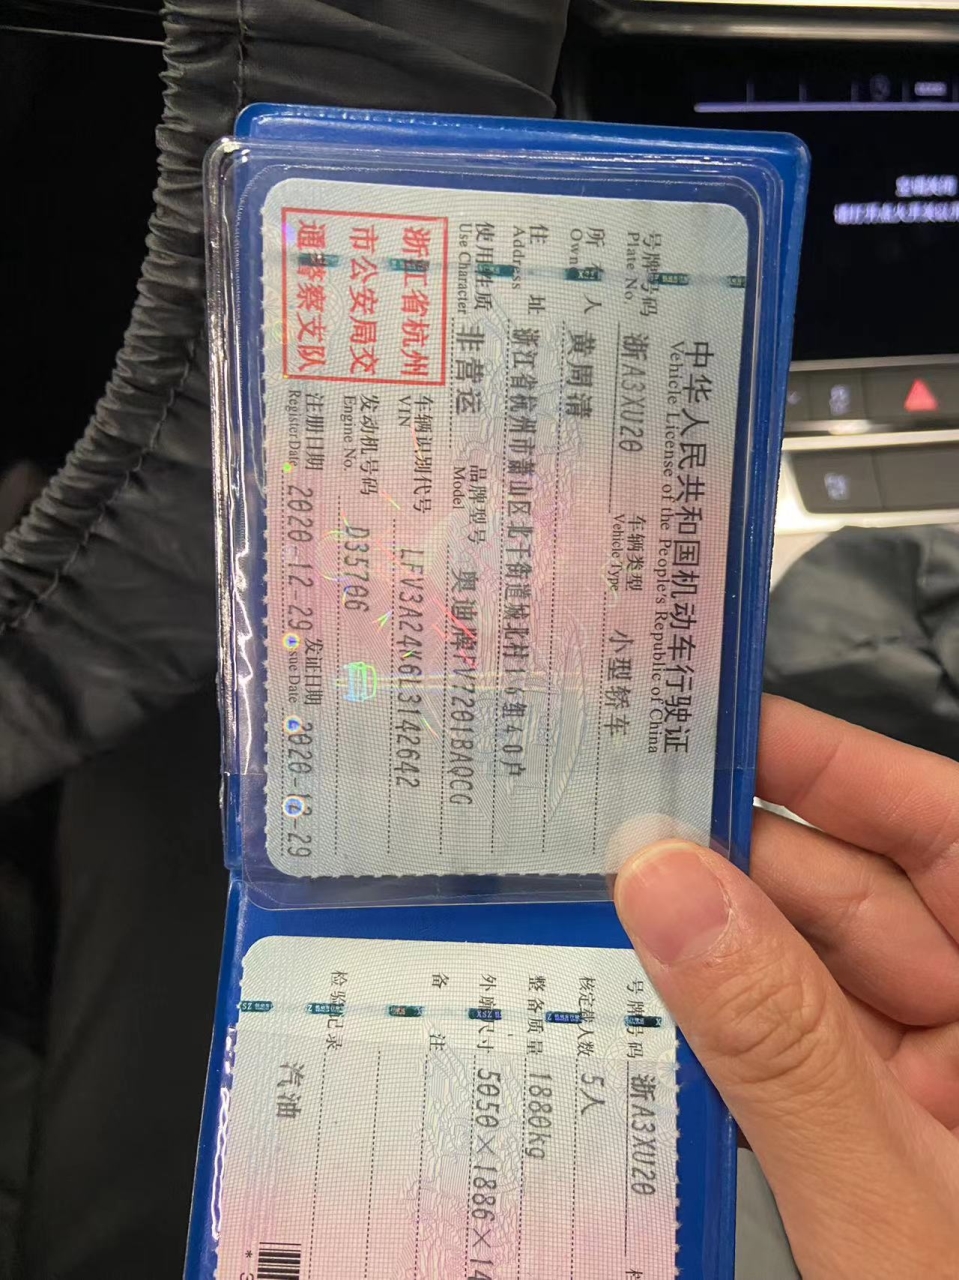 中华人民共和国机动车行驶证
Vehicle License of the People's Republic of China
号牌号码 浙A3XU20 车辆类型 小型轿车
Plate No. Vehicle Type
所有人 黄周清
Own
住址 浙江省杭州市萧山区北干街道城北村16组40户
Address
使用性质 非营运 品牌型号 奥迪牌FV7201BAQCG
Use Character Model
浙江省杭州
市公安局交
通警察支队
车辆识别代号 LFV3A24K6L3142642
VIN
发动机号码 D35706
Engine No.
注册日期 2020-12-29 发证日期 2020-12-29
Register Date Issue Date
号牌号码 浙A3XU20
核定载人数 5人
整备质量 1880kg
外廓尺寸 5050×1886×14
备注
检验记录
汽油
空调关闭